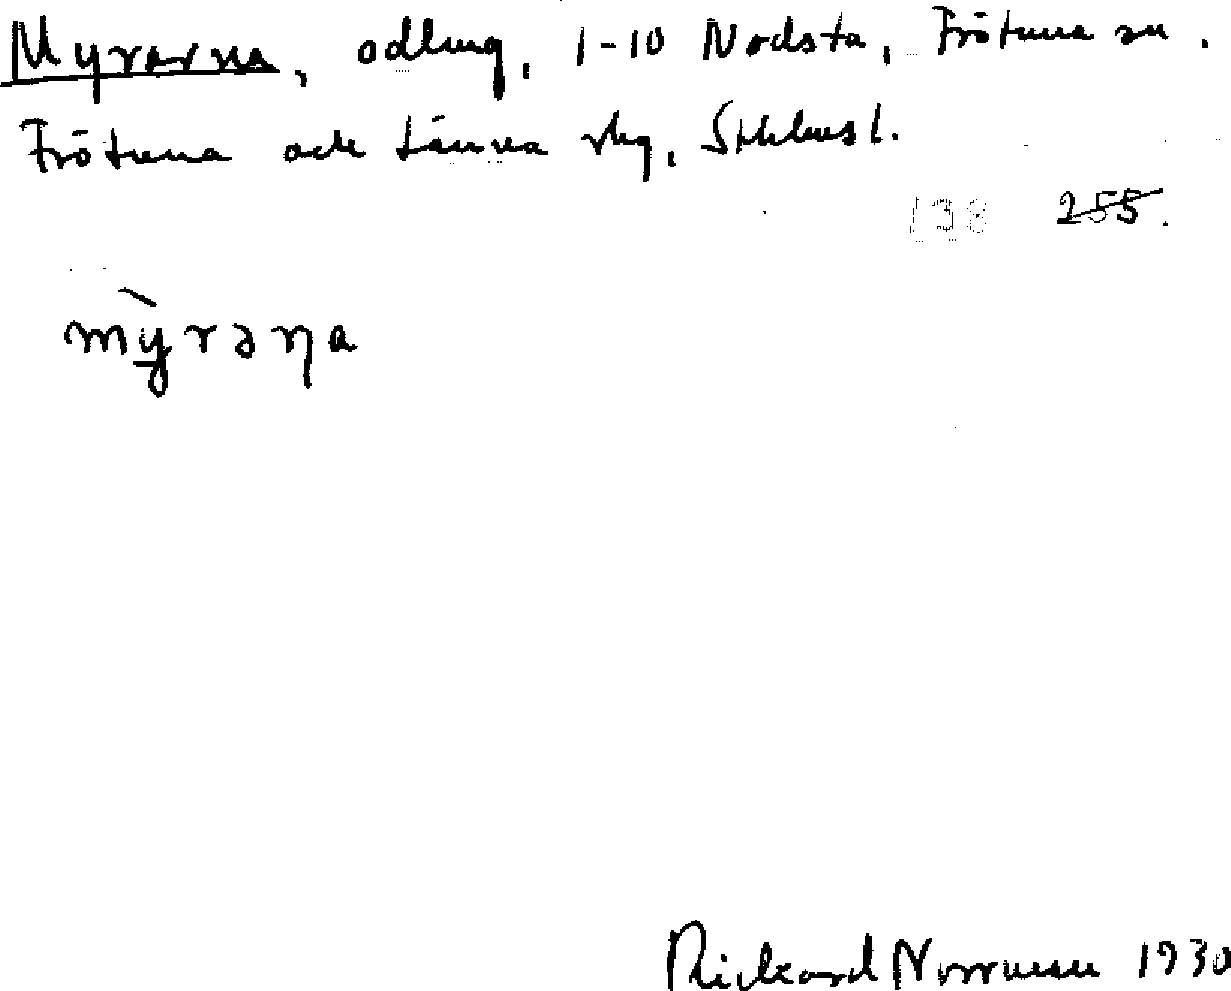 Myrarna, odling, 1-10 Nodsta, Frötuna sn.
Frötuna och Länna skg, Sthlms l.
138 255.
mỳrəna
Rickard Norrman 1930